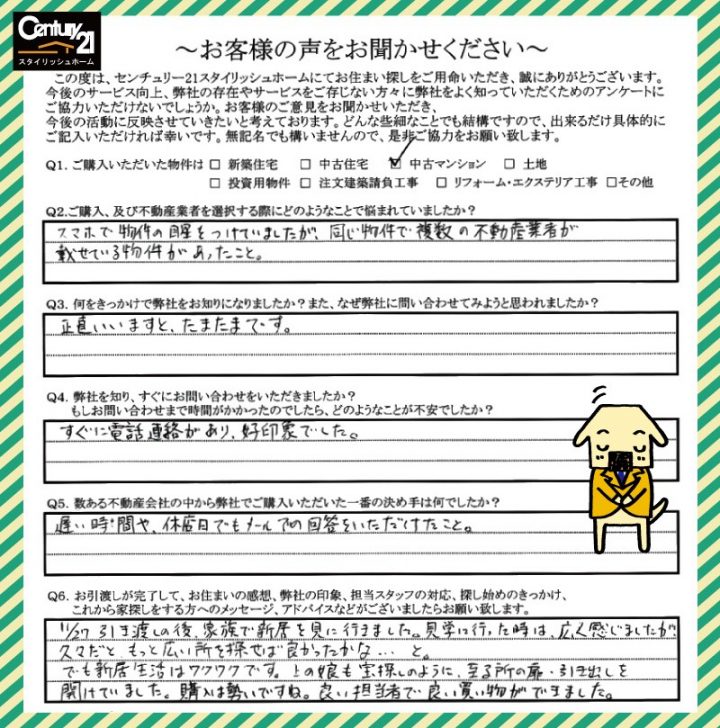 Century 21
スタイリッシュホーム
～お客様の声をお聞かせください～
この度は、センチュリー21スタイリッシュホームにてお住まい探しをご用命いただき、誠にありがとうございます。
今後のサービス向上、弊社の存在やサービスをご存じない方々に弊社をよく知っていただくためのアンケートに
ご協力いただけないでしょうか。お客様のご意見をお聞かせいただき、
今後の活動に反映させていきたいと考えております。どんな些細なことでも結構ですので、出来るだけ具体的に
ご記入いただければ幸いです。無記名でも構いませんので、是非ご協力をお願い致します。
Q1. ご購入いただいた物件は □ 新築住宅 □ 中古住宅 ☑ 中古マンション □ 土地
□ 投資用物件 □ 注文建築請負工事 □ リフォーム・エクステリア工事 □その他
Q2.ご購入、及び不動産業者を選択する際にどのようなことで悩まれていましたか？
スマホで物件の目星をつけていましたが、同じ物件で複数の不動産業者が
載せている物件があったこと。
Q3. 何をきっかけで弊社をお知りになりましたか？また、なぜ弊社に問い合わせてみようと思われましたか？
正直いいますと、たまたまです。
Q4. 弊社を知り、すぐにお問い合わせをいただきましたか？
もしお問い合わせまで時間がかかったのでしたら、どのようなことが不安でしたか？
すぐに電話連絡があり、好印象でした。
Q5. 数ある不動産会社の中から弊社でご購入いただいた一番の決め手は何でしたか？
遅い時間や、休店日でもメールでの回答をいただけたこと。
Q6. お引渡しが完了して、お住まいの感想、弊社の印象、担当スタッフの対応、探し始めのきっかけ、
これから家探しをする方へのメッセージ、アドバイスなどがございましたらお願い致します。
11/27 引き渡しの後、家族で新居を見に行きました。見学に行った時は、広く感じましたが、
久々だと、もっと広い所を探せば良かったかな… と。
でも新居生活はワクワクです。上の娘も宝探しのように、至る所の扉・引き出しを
開けていました。購入は勢いですね。良い担当者で良い買い物ができました。